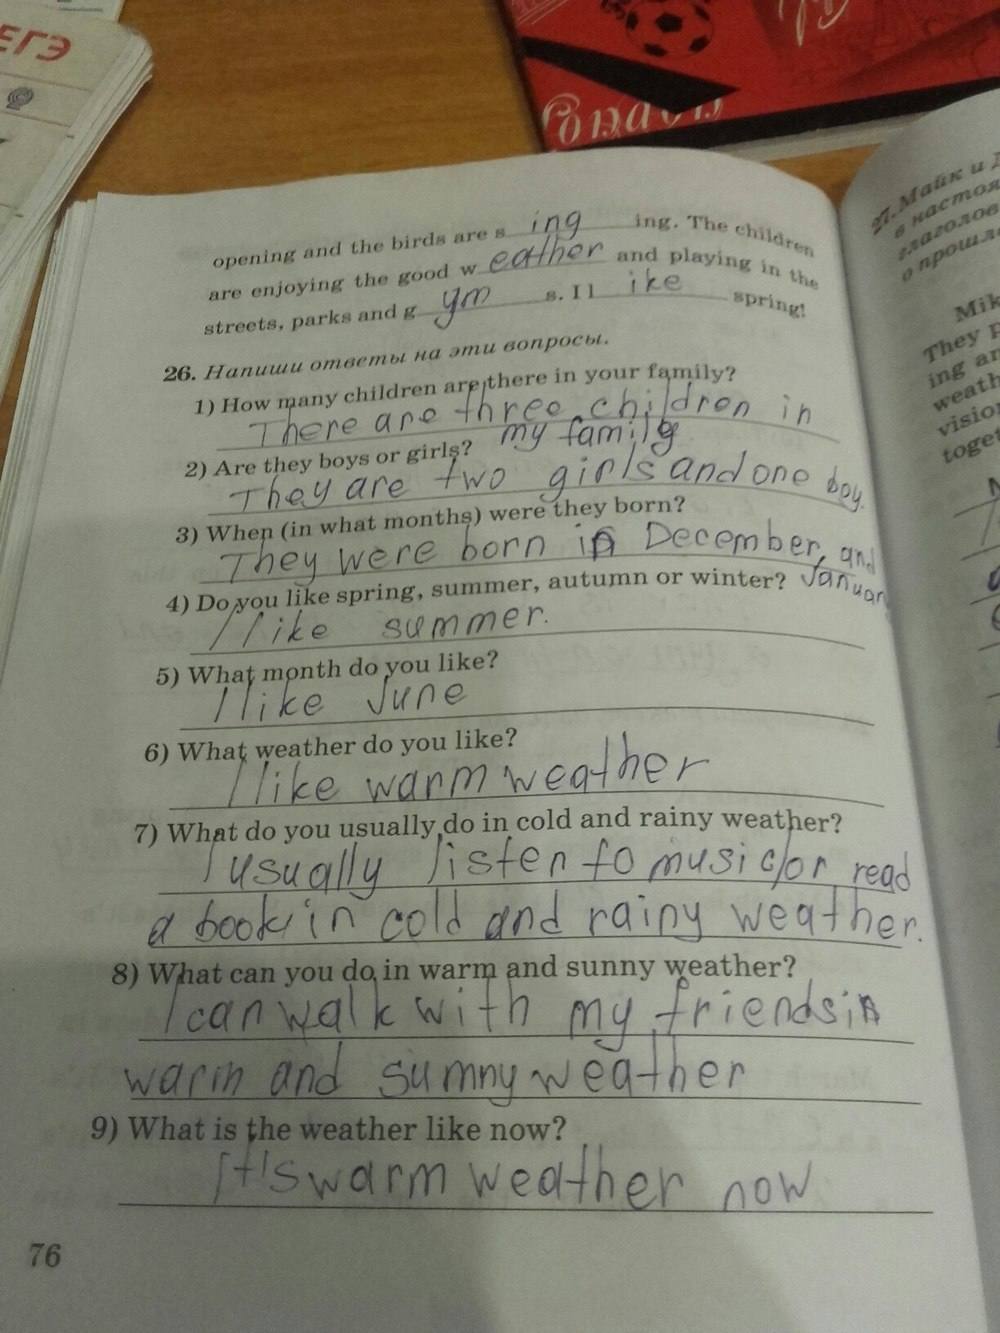 ЕГЭ
opening and the birds are s ing ing. The children
are enjoying the good w eather and playing in the
streets, parks and g ym s. I l ike spring!
26. Напиши ответы на эти вопросы.
1) How many children are there in your family?
There are three children in
my family
2) Are they boys or girls?
They are two girls and one boy.
3) When (in what months) were they born?
They were born in December, and
Januar
4) Do you like spring, summer, autumn or winter?
I like summer.
5) What month do you like?
I like June
6) What weather do you like?
I like warm weather
7) What do you usually do in cold and rainy weather?
I usually listen to music/or read
a book in cold and rainy weather.
8) What can you do in warm and sunny weather?
I can walk with my friends in
warm and sumny weather
9) What is the weather like now?
It's warm weather now
76
27. Майк и
в настоя
глаголов
о прошл
Mik
They
ing an
weath
vision
toget